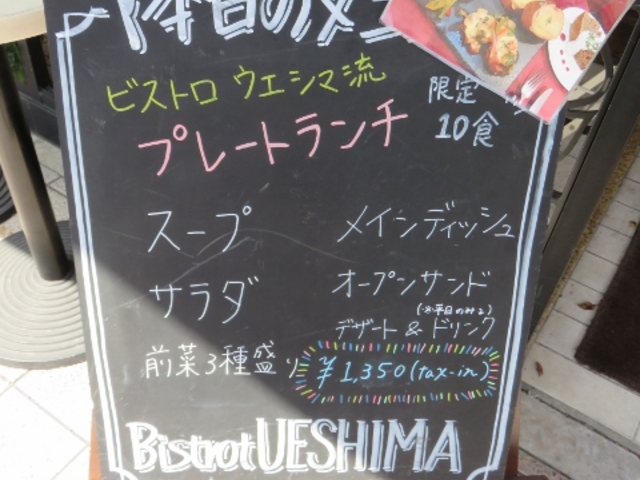 本日のメニュー
ビストロ ウエシマ流
プレートランチ
限定
10食
スープ
サラダ
前菜3種盛り
メインディッシュ
オープンサンド
(※平日のみ)
デザート & ドリンク
¥1,350(tax-in)
Bistrot UESHIMA